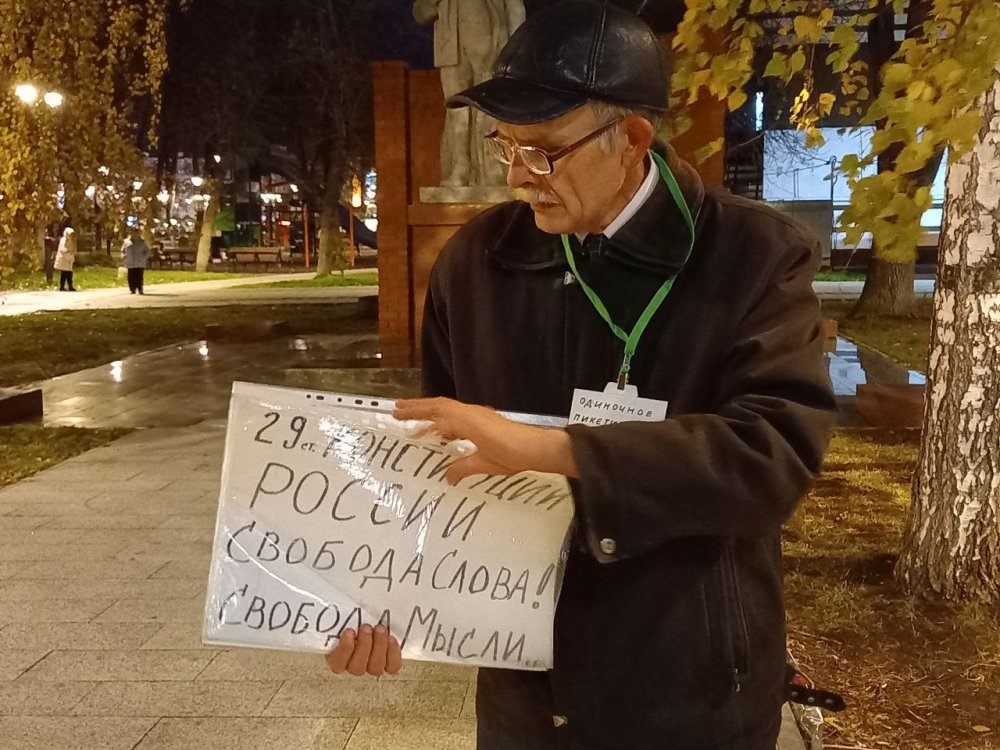 29 ст. КОНСТИТУЦИИ
РОССИИ
СВОБОДА СЛОВА!
СВОБОДА МЫСЛИ...
ОДИНОЧНОЕ